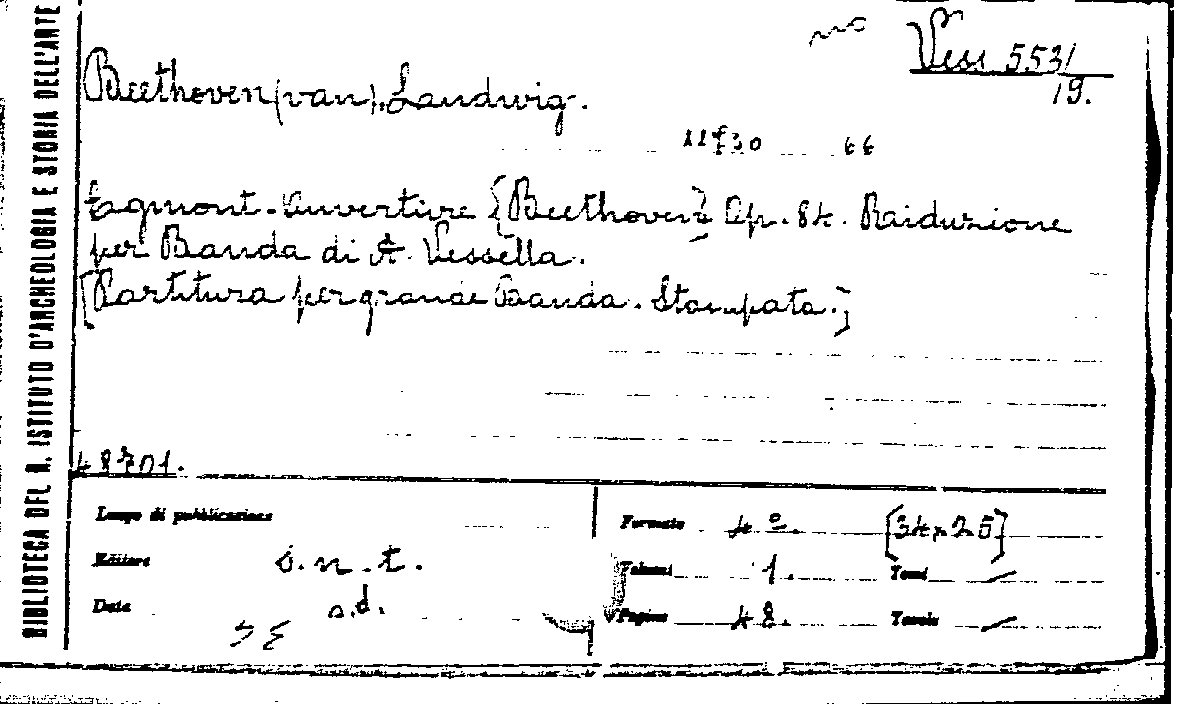 Vess 553/
19.
Beethoven (van), Landwig.
11730 44
Egmont-Ouverture {Beethoven} Op. 84. Raiduzione
per Banda di A. Vessella.
[Partitura per grande Banda. Stampata.]
48701.
Luogo di pubblicazione
Editore s.n.t.
Data s.d.
Formato 4º. [34x25]
Volumi 1. Tomi /
Pagine 48. Tavole /
BIBLIOTECA DEL R. ISTITUTO D'ARCHEOLOGIA E STORIA DELL'ARTE